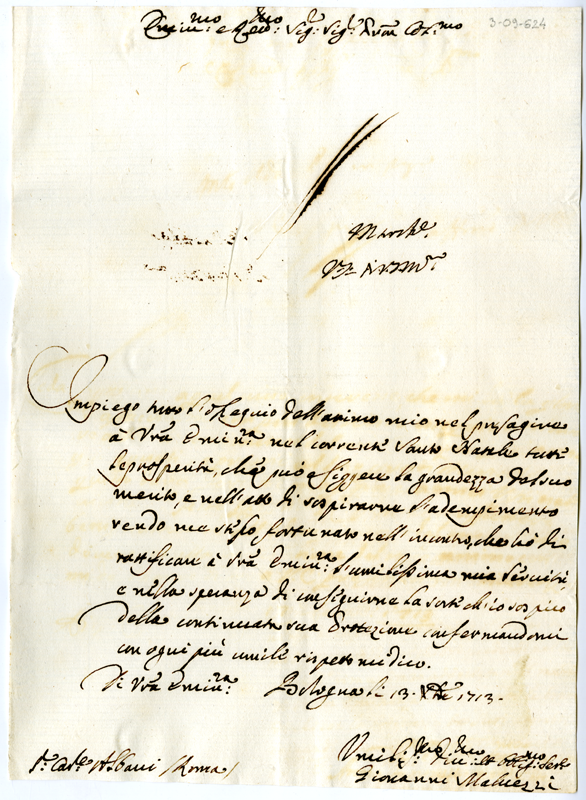 3-09-624
Emin:mo e Rev:mo Sig:r Sig:r Pron Col:mo
Impiego tutto l'ossequio dell'animo mio nel presagire
à Vrã Emin:za nel corrente Santo Natale tutte
le prosperità, che può esiggere la grandezza del suo
merito, e nell'atto di sospirarne l'adempimento
rendo me stesso fortunato nell'incontro, che hò di
rattificare à Vrã Emin:za l'umilissima mia servitù,
e nella speranza di conseguirne la sorte ch'io sospiro
della continuata sua Protezione confermandomi
con ogni più umile rispetto mi dico.
Di Vrã Emin:za Bologna li 13. Xbre 1713.
Umiliss:mo Div:mo et Obblig:mo Ser:
Giovanni Malvezzi
S:r Car:le Albani /Roma/